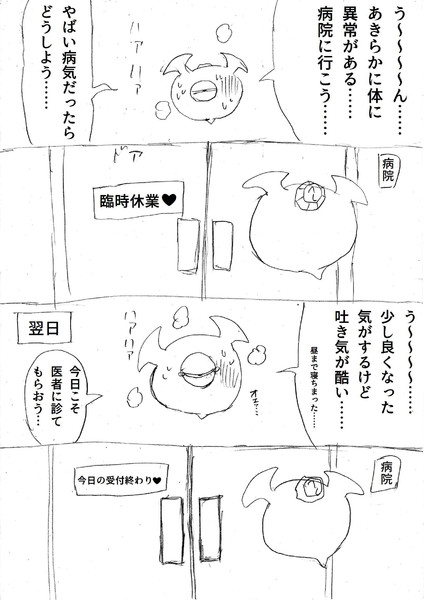 う～～～～ん……
あきらかに体に
異常がある……
病院に行こう……
ハァハァ
やばい病気だったら
どうしよう……
病院
ドア
臨時休業♥
う～～～～……
少し良くなった
気がするけど
吐き気が酷い……
昼まで寝ちまった……
翌日
ハァハァ
オェッ…
今日こそ
医者に診て
もらおう…
病院
今日の受付終わり♥